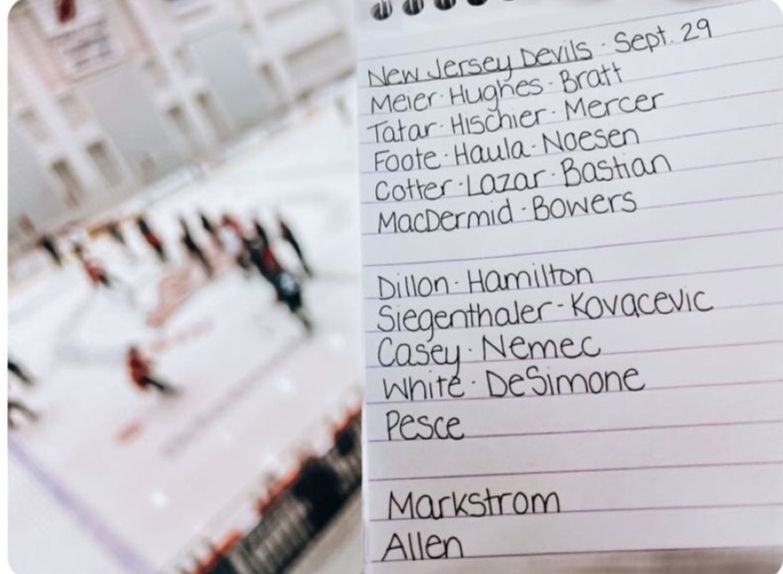 New Jersey Devils · Sept. 29
Meier · Hughes · Bratt
Tatar · Hischier · Mercer
Foote · Haula · Noesen
Cotter · Lazar · Bastian
MacDermid · Bowers
Dillon · Hamilton
Siegenthaler - Kovacevic
Casey · Nemec
White · DeSimone
Pesce
Markstrom
Allen